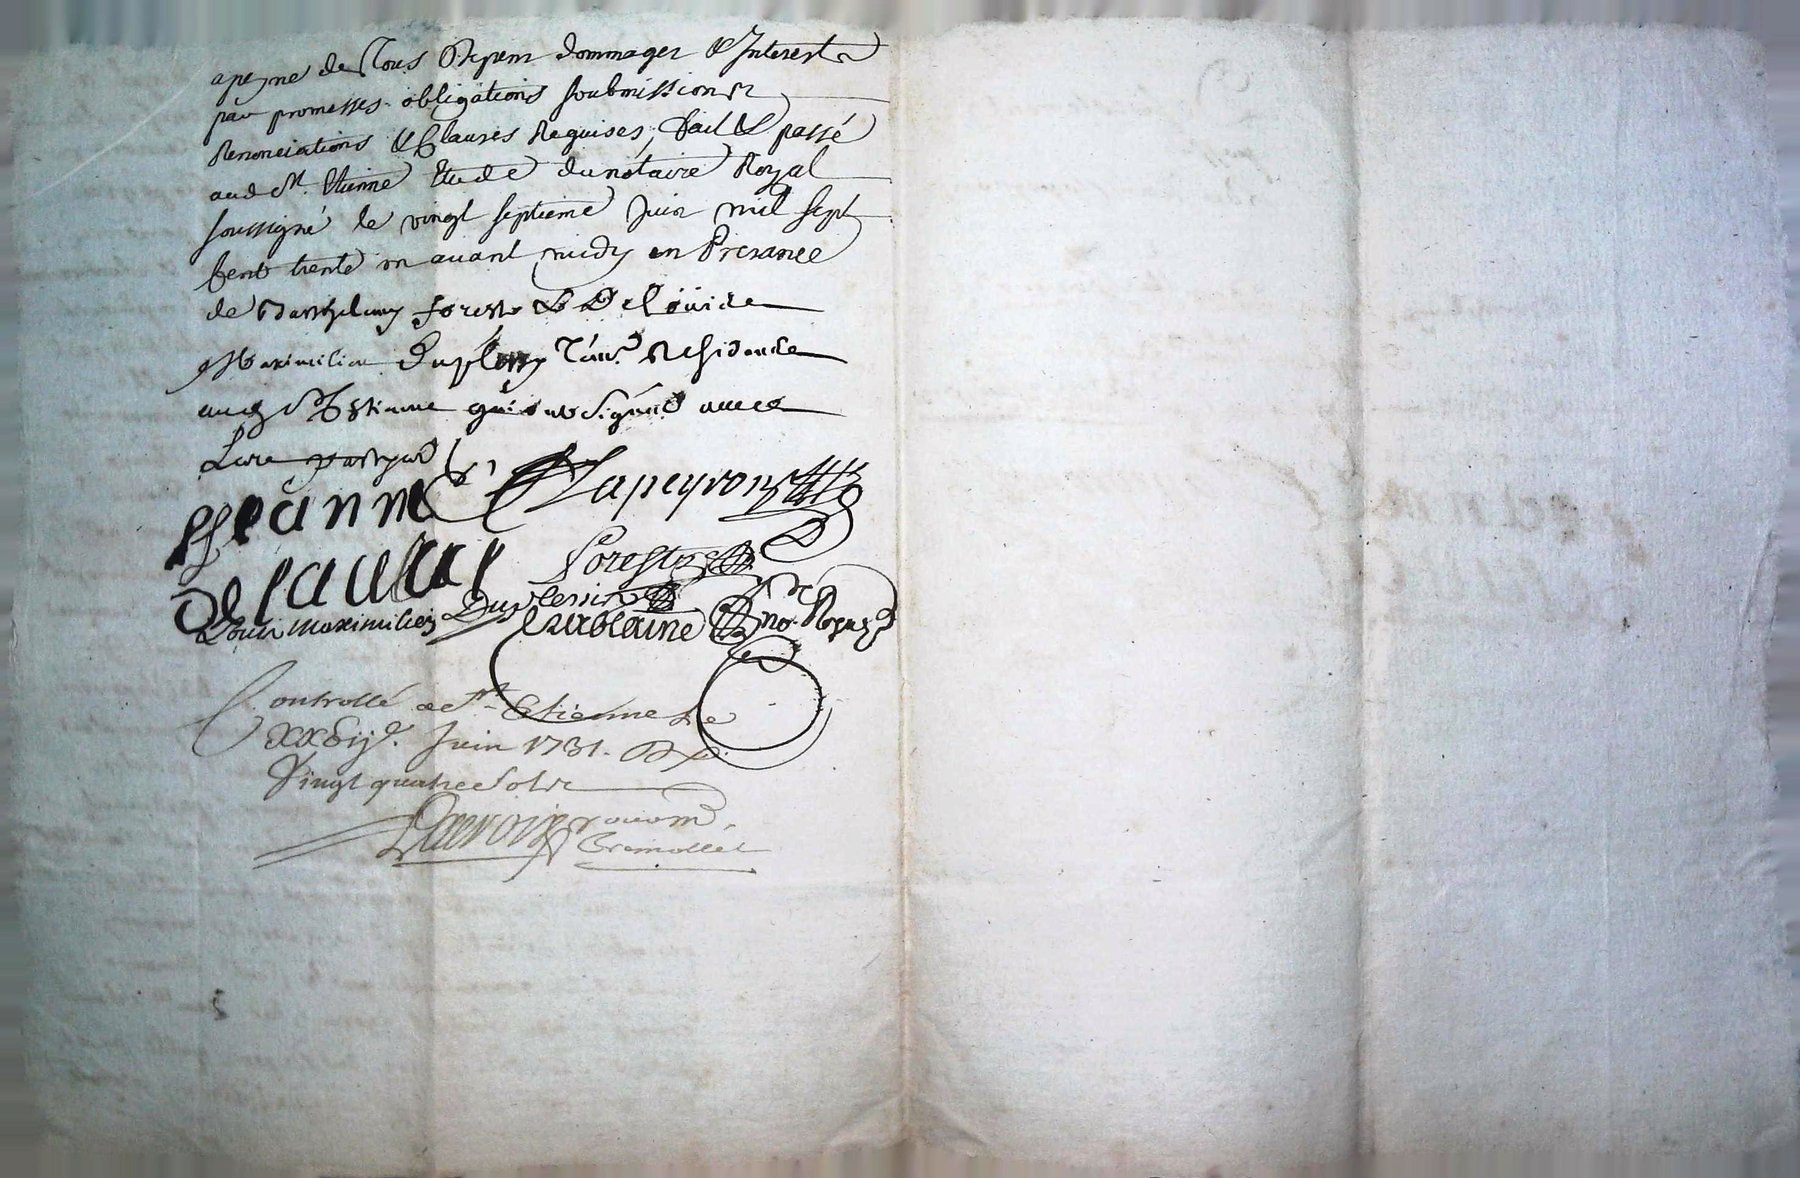 apeyne de Tous Depens dommages & Interest
par promesses obligations soubmissions
Renonciations & Clauses Requises, fait & passé
aud St. Etienne Etude du notaire Royal
soussigné le vingt septieme Juin mil sept
Cent trente un avant midy en Presance
de Barthelemy forest & de Louis
Maximilien Duplessy Residents
aud St Estienne qui ont signé avec
Lapeyrons
Jeanne
forest
Louis Maximilien Duplessy
no. Royal
Controllé a St Etienne le
Juin 1731.
Vingt quatre sols